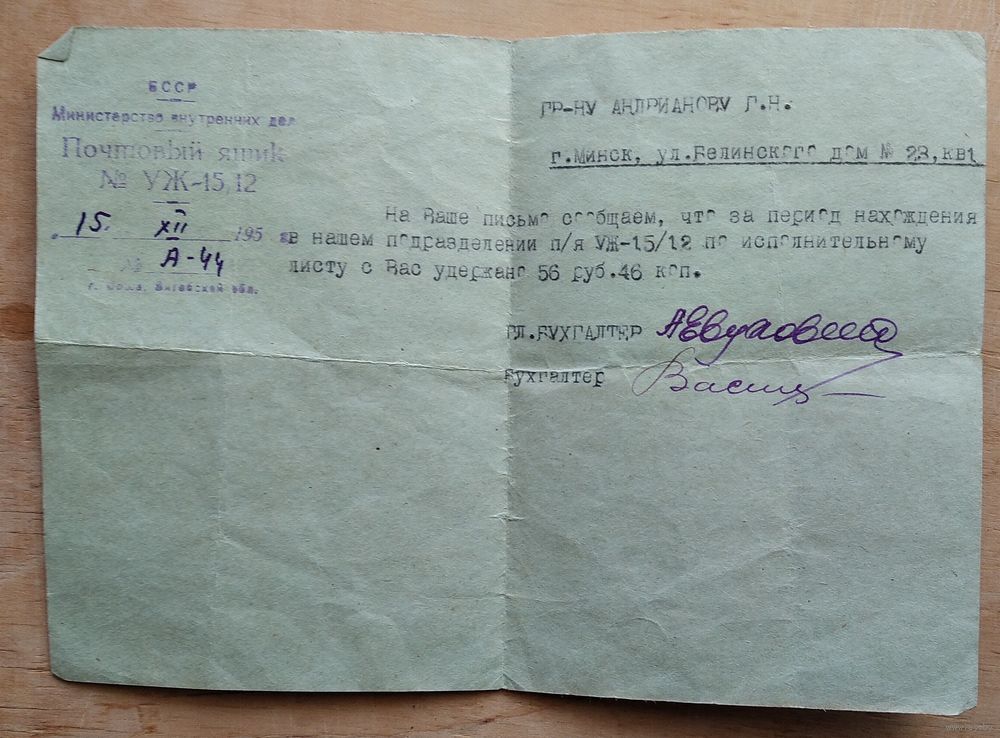 БССР
Министерство внутренних дел
Почтовый ящик
№ УЖ-15,12
15. XII 195
№ А-44
г. Орша, Витебской обл.
ГР-НУ АНДРИАНОВУ Г.Н.
г.Минск, ул.Белинского дом № 23,кв1
На Ваше письмо сообщаем, что за период нахождения
в нашем подразделении п/я УЖ-15/12 по исполнительному
листу с Вас удержано 56 руб.46 коп.
ГЛ.БУХГАЛТЕР
Бухгалтер